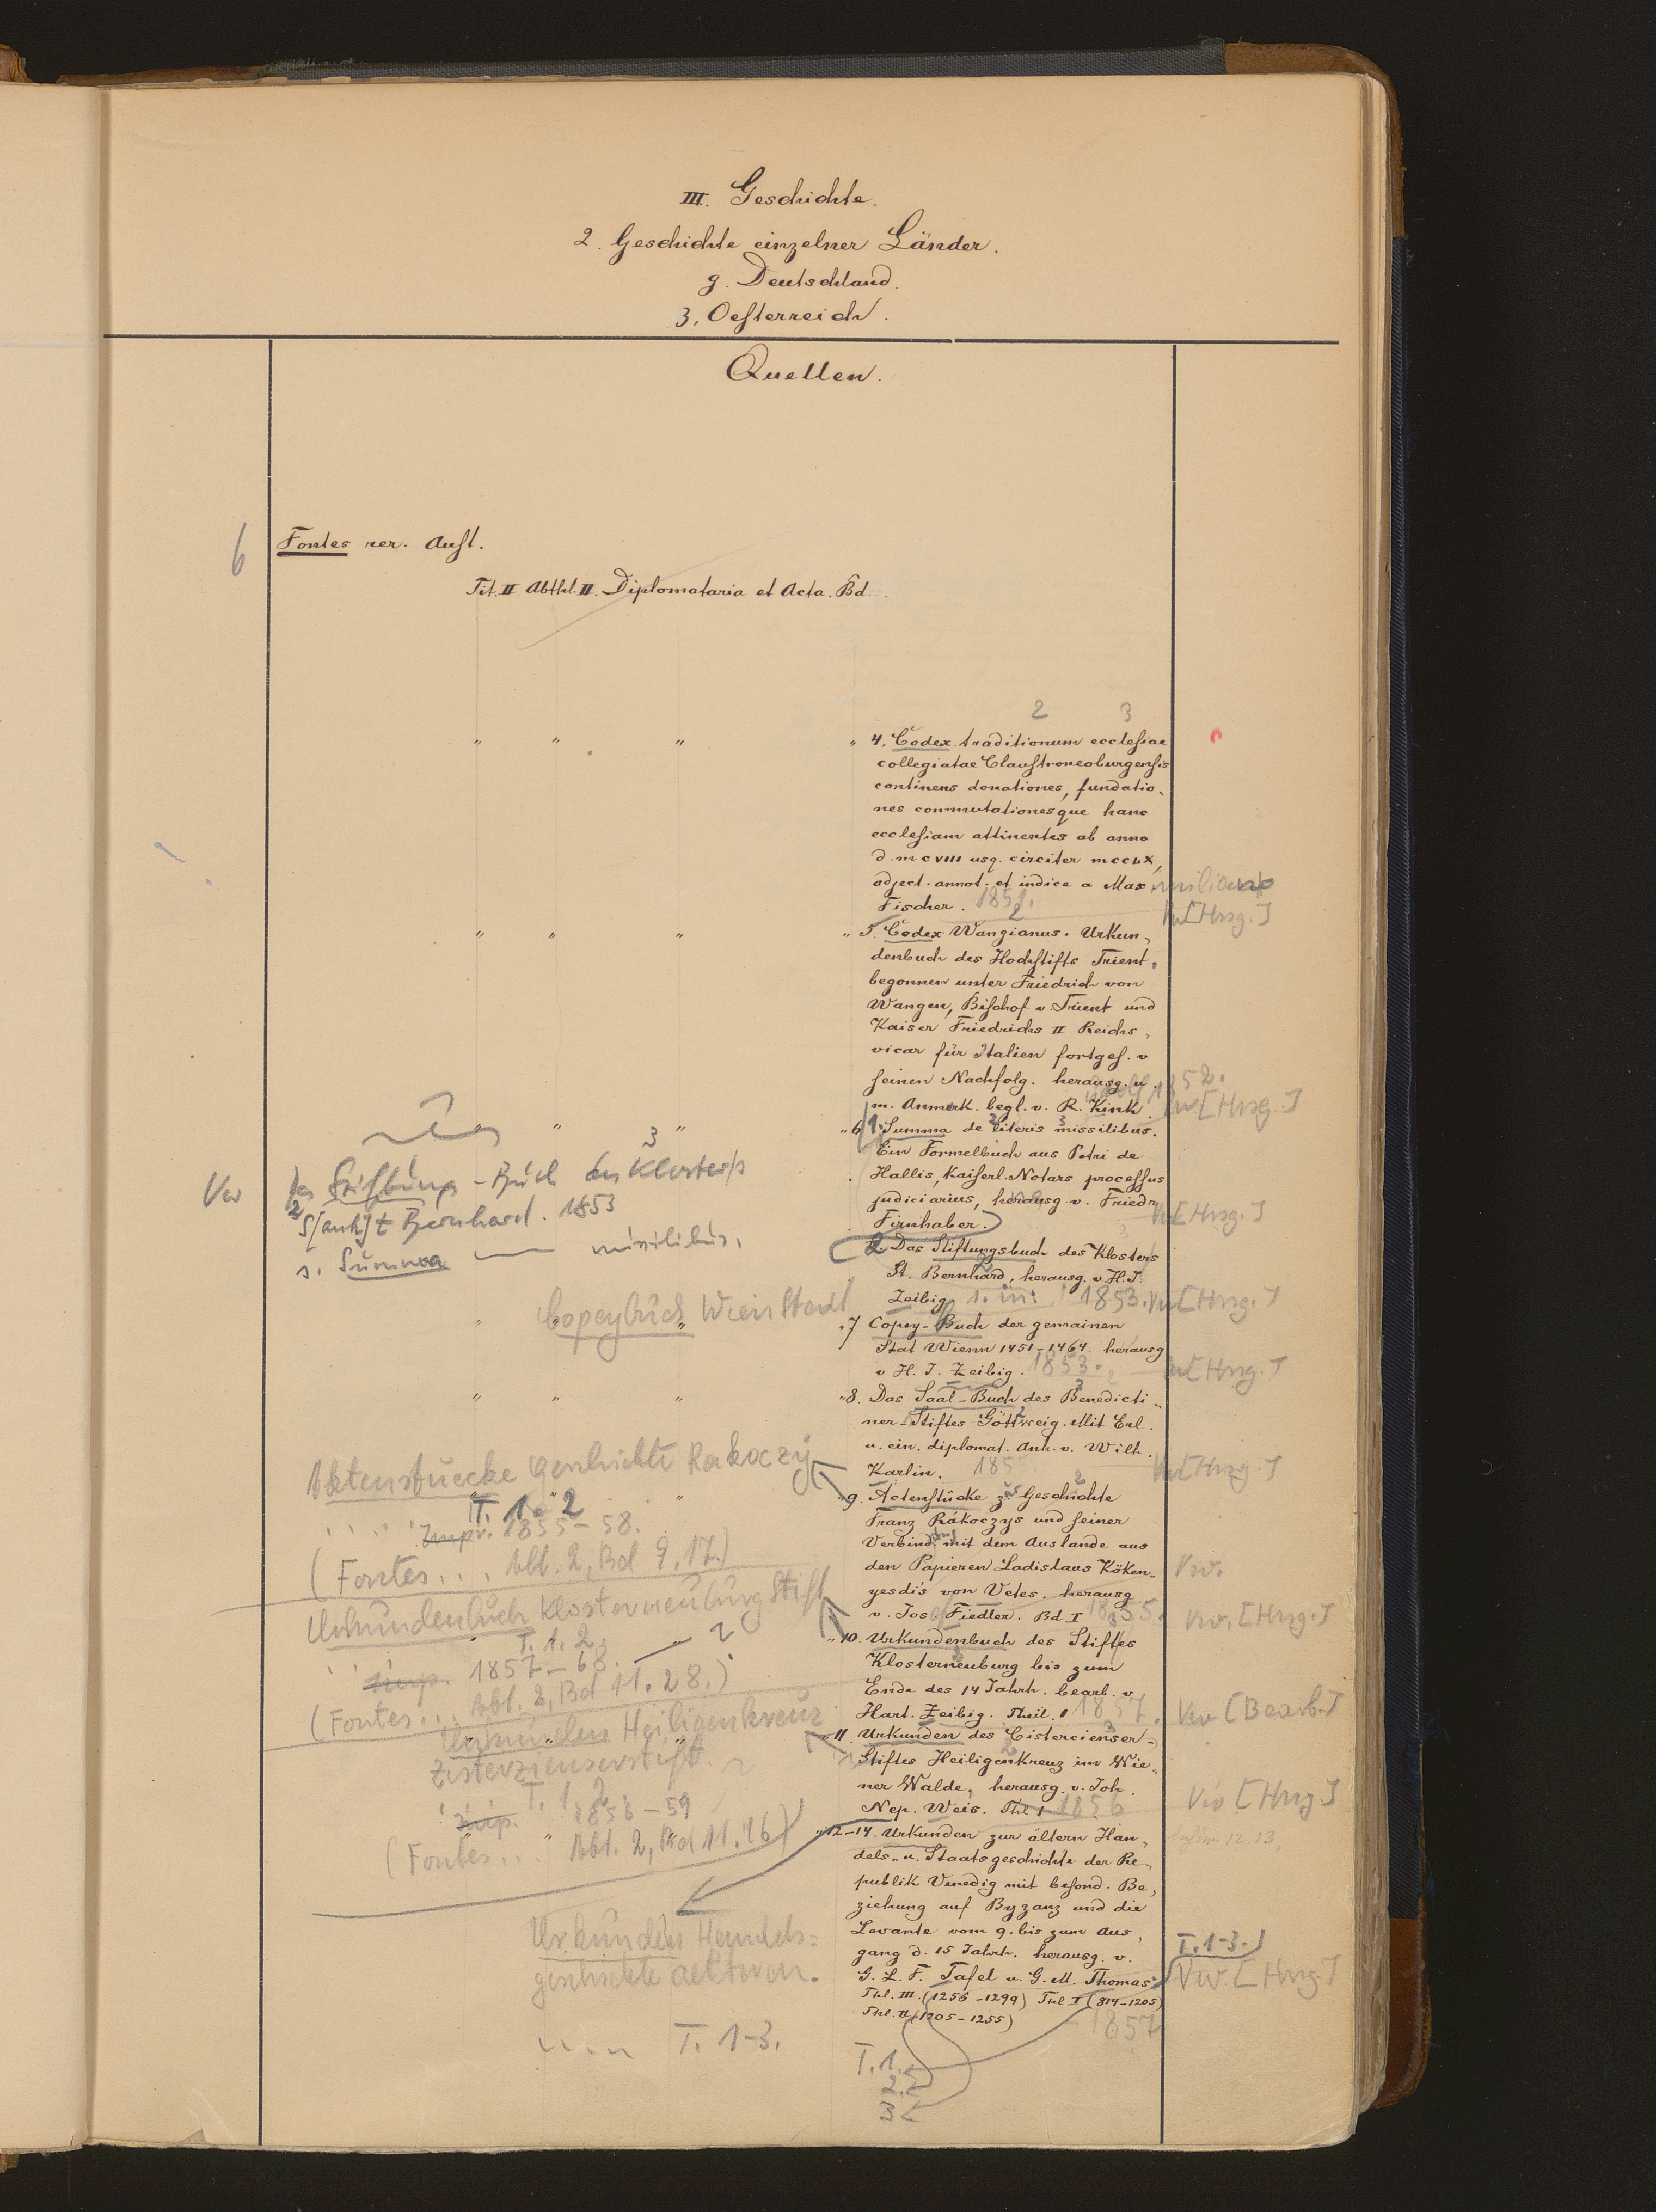 III. Geschichte.
2. Geschichte einzelner Länder.
g. Deutschland.
3. Oesterreich.
Quellen.
6
Fontes rer. Aust.
Tit. II Abthl. II. Diplomataria et Acta. Bd.
2 3
" " " " 4. Codex traditionum ecclesiae
collegiatae Claustroneoburgensis
continens donationes, fundatio-
nes commutationesque hanc
ecclesiam attinentes ab anno
d. MCVIII usq. circiter MCCLX,
adject. annot. et indice a Maximiliano
Fischer. 1851. Vw [Hrsg.]
2
" " " " 5. Codex Wangianus. Urkun-
denbuch des Hochstifts Trient,
begonnen unter Friedrich von
Wangen, Bischof v. Trient und
Kaiser Friedrichs II Reichs-
vicar für Italien fortges. v
seinen Nachfolg. herausg. u.
m. Anmerk. begl. v. R. Kink. 1852. Vw [Hrsg.]
" " " " 6. 1. Summa de literis missilibus.
Ein Formelbuch aus Petri de
Hallis, kaiserl. Notars processus
judiciarius, herausg. v. Friedr.
Firnhaber. Vw [Hrsg.]
Vw Stiftungs-Buch des Klosters
S[ank]t Bernhard. 1853
s. Summa — missilibus.
2. Das Stiftungsbuch des Klosters
St. Bernhard, herausg. v. H. J.
Zeibig 1853. Vw [Hrsg.]
Copeybuch Wien Stadt
" 7 Copey-Buch der gemainen
Stat Wienn 1451-1464. herausg
v H. J. Zeibig. 1853. Vw [Hrsg.]
" " " " 8. Das Saal-Buch des Benedicti-
ner-Stiftes Göttweig. Mit Erl.
u. ein. diplomat. Anh. v. Wilh.
Karlin. 185 Vw [Hrsg.]
Aktenstuecke Geschichte Rakoczy
T. 1. 2
Impr. 1855-58.
(Fontes... Abt. 2, Bd 9. 17.)
" 9. Actenstücke zur Geschichte
Franz Rákoczys und seiner
Verbind. mit dem Auslande aus
den Papieren Ladislaus Köken-
yesdis von Vetes. herausg Vw.
v. Josef Fiedler. Bd. I 1855. Vw. [Hrsg.]
Urkundenbuch Klosterneuburg Stift
T. 1. 2.
Imp. 1857-68.
(Fontes... Abt. 2, Bd 11. 28.)
" 10. Urkundenbuch des Stiftes
Klosterneuburg bis zum
Ende des 14 Jahrh. bearb. v
Hart. Zeibig. Theil. 1 1857. Vw [Bearb.]
Urkunden Heiligenkreuz
Zisterzienserstift
T. 1. 2.
Imp. 1856-59
(Fontes... Abt. 2, Bd 11. 16)
" 11. Urkunden des Cistercienser-
Stiftes Heiligenkreuz im Wie-
ner Walde, herausg. v. Joh.
Nep. Weis. Thl 1 1856 Vw [Hrsg]
" 12-14. Urkunden zur ältern Han-
dels- u. Staatsgeschichte der Re-
publik Venedig mit besond. Be-
ziehung auf Byzanz und die
Levante vom 9. bis zum Aus-
gang d. 15 Jahrh. herausg. v.
G. L. F. Tafel u. G. M. Thomas
T. 1-3.
Vw. [Hrsg.]
Thl. III. (1256-1299) Thl. I (814-1205)
Thl. II (1205-1255)
- 1857
Urkunden Handels-
geschichte aelteren.
T. 1-3.
T. 1.
2.
3